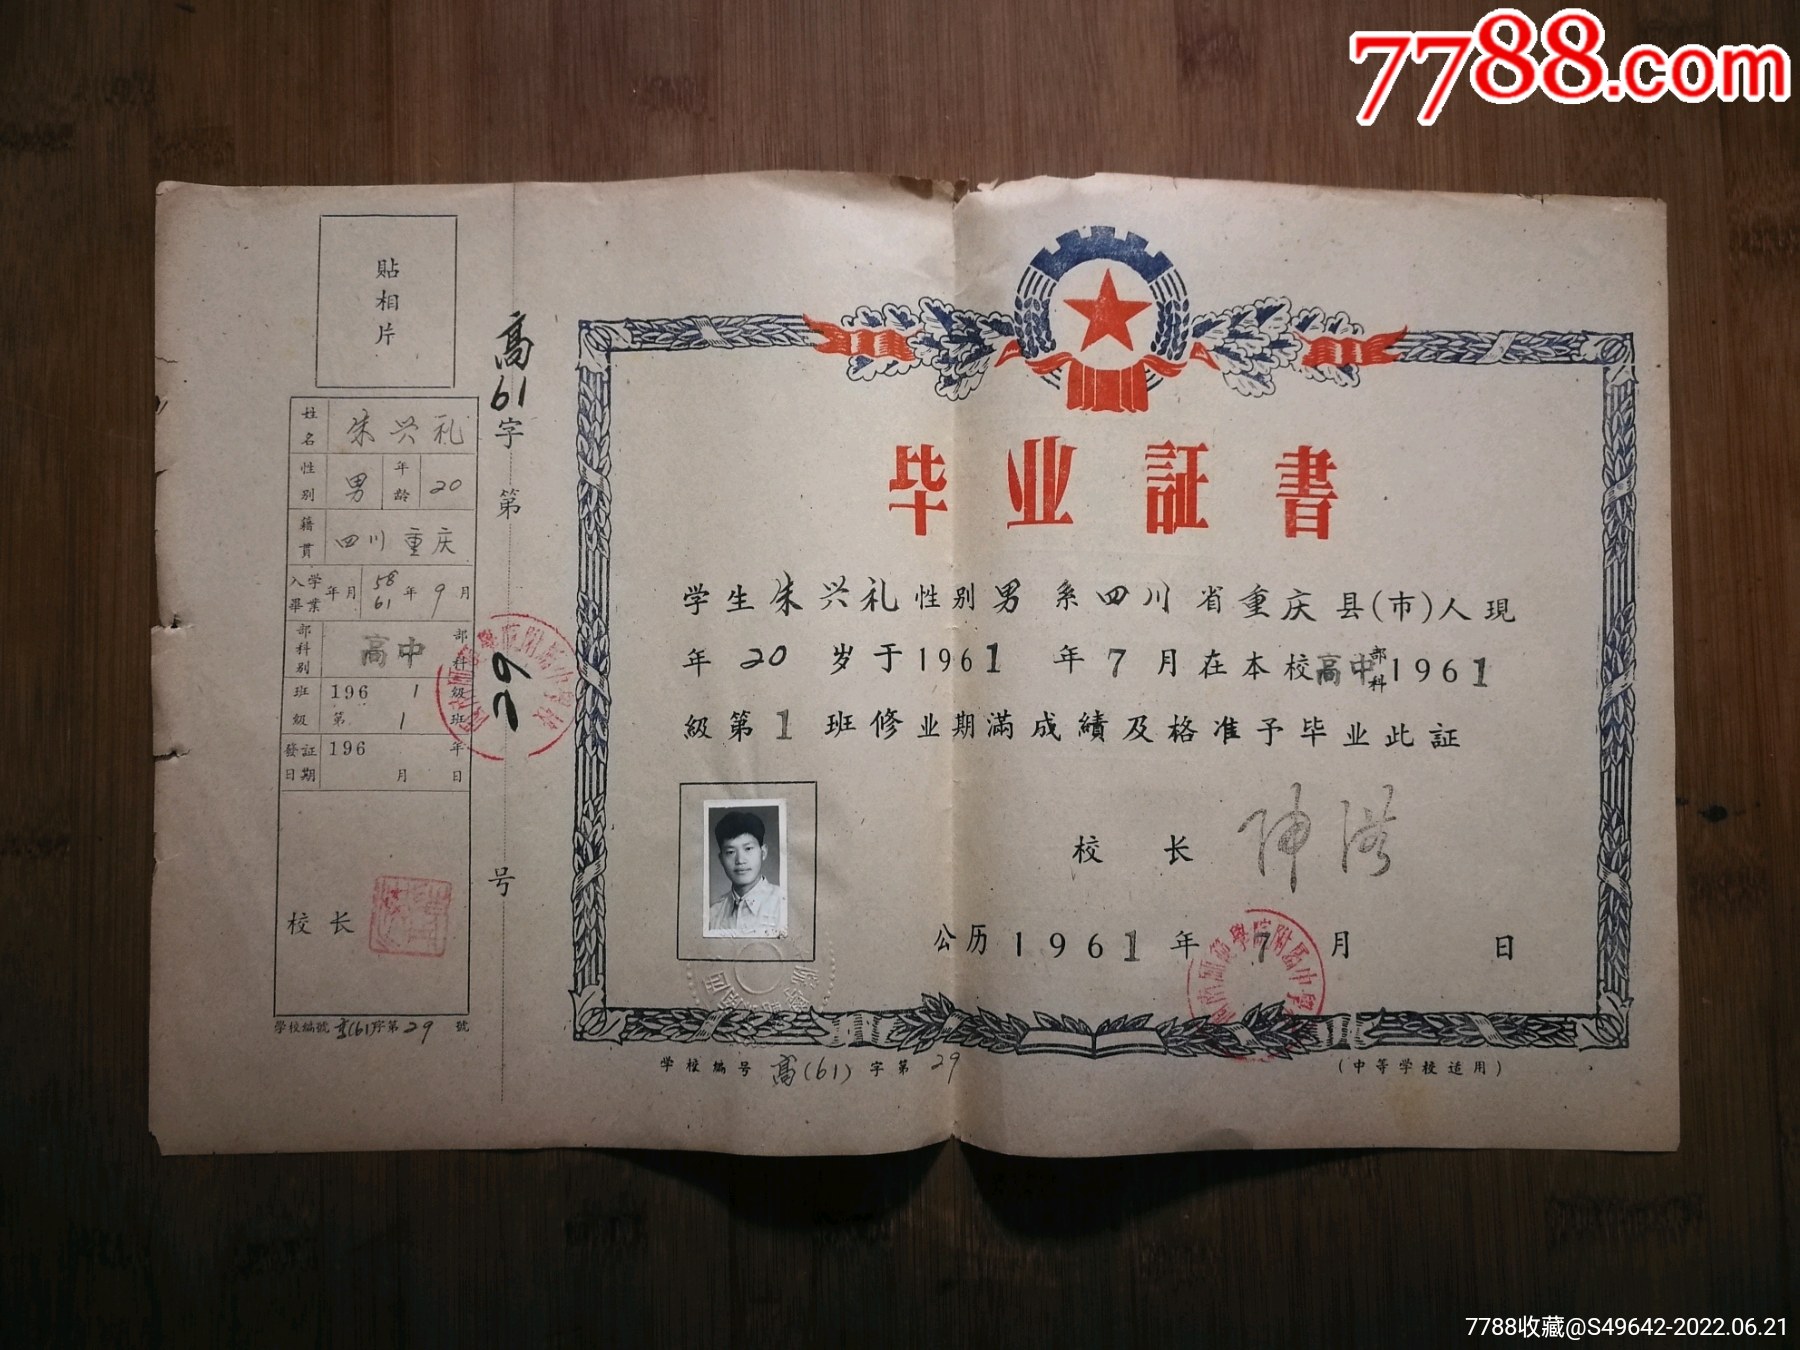 7788.com
貼相片
姓名 朱兴礼
性别 男 年龄 20
籍貫 四川重庆
入学 畢業 年月 58 61 年 9 月
部科别 高中 部科
班級 196 1 級 第 1 班
發証日期 196 年 月 日
校长
学校編號 高(61)字第 29 號
高61字第 29 号
毕业証書
学生朱兴礼性别男系四川省重庆县(市)人現
年20岁于1961年7月在本校高中部科1961
級第1班修业期滿成績及格准予毕业此証
校长
公历1961年7月 日
学校編号 高(61)字第 29
(中等学校适用)
7788收藏@S49642-2022.06.21